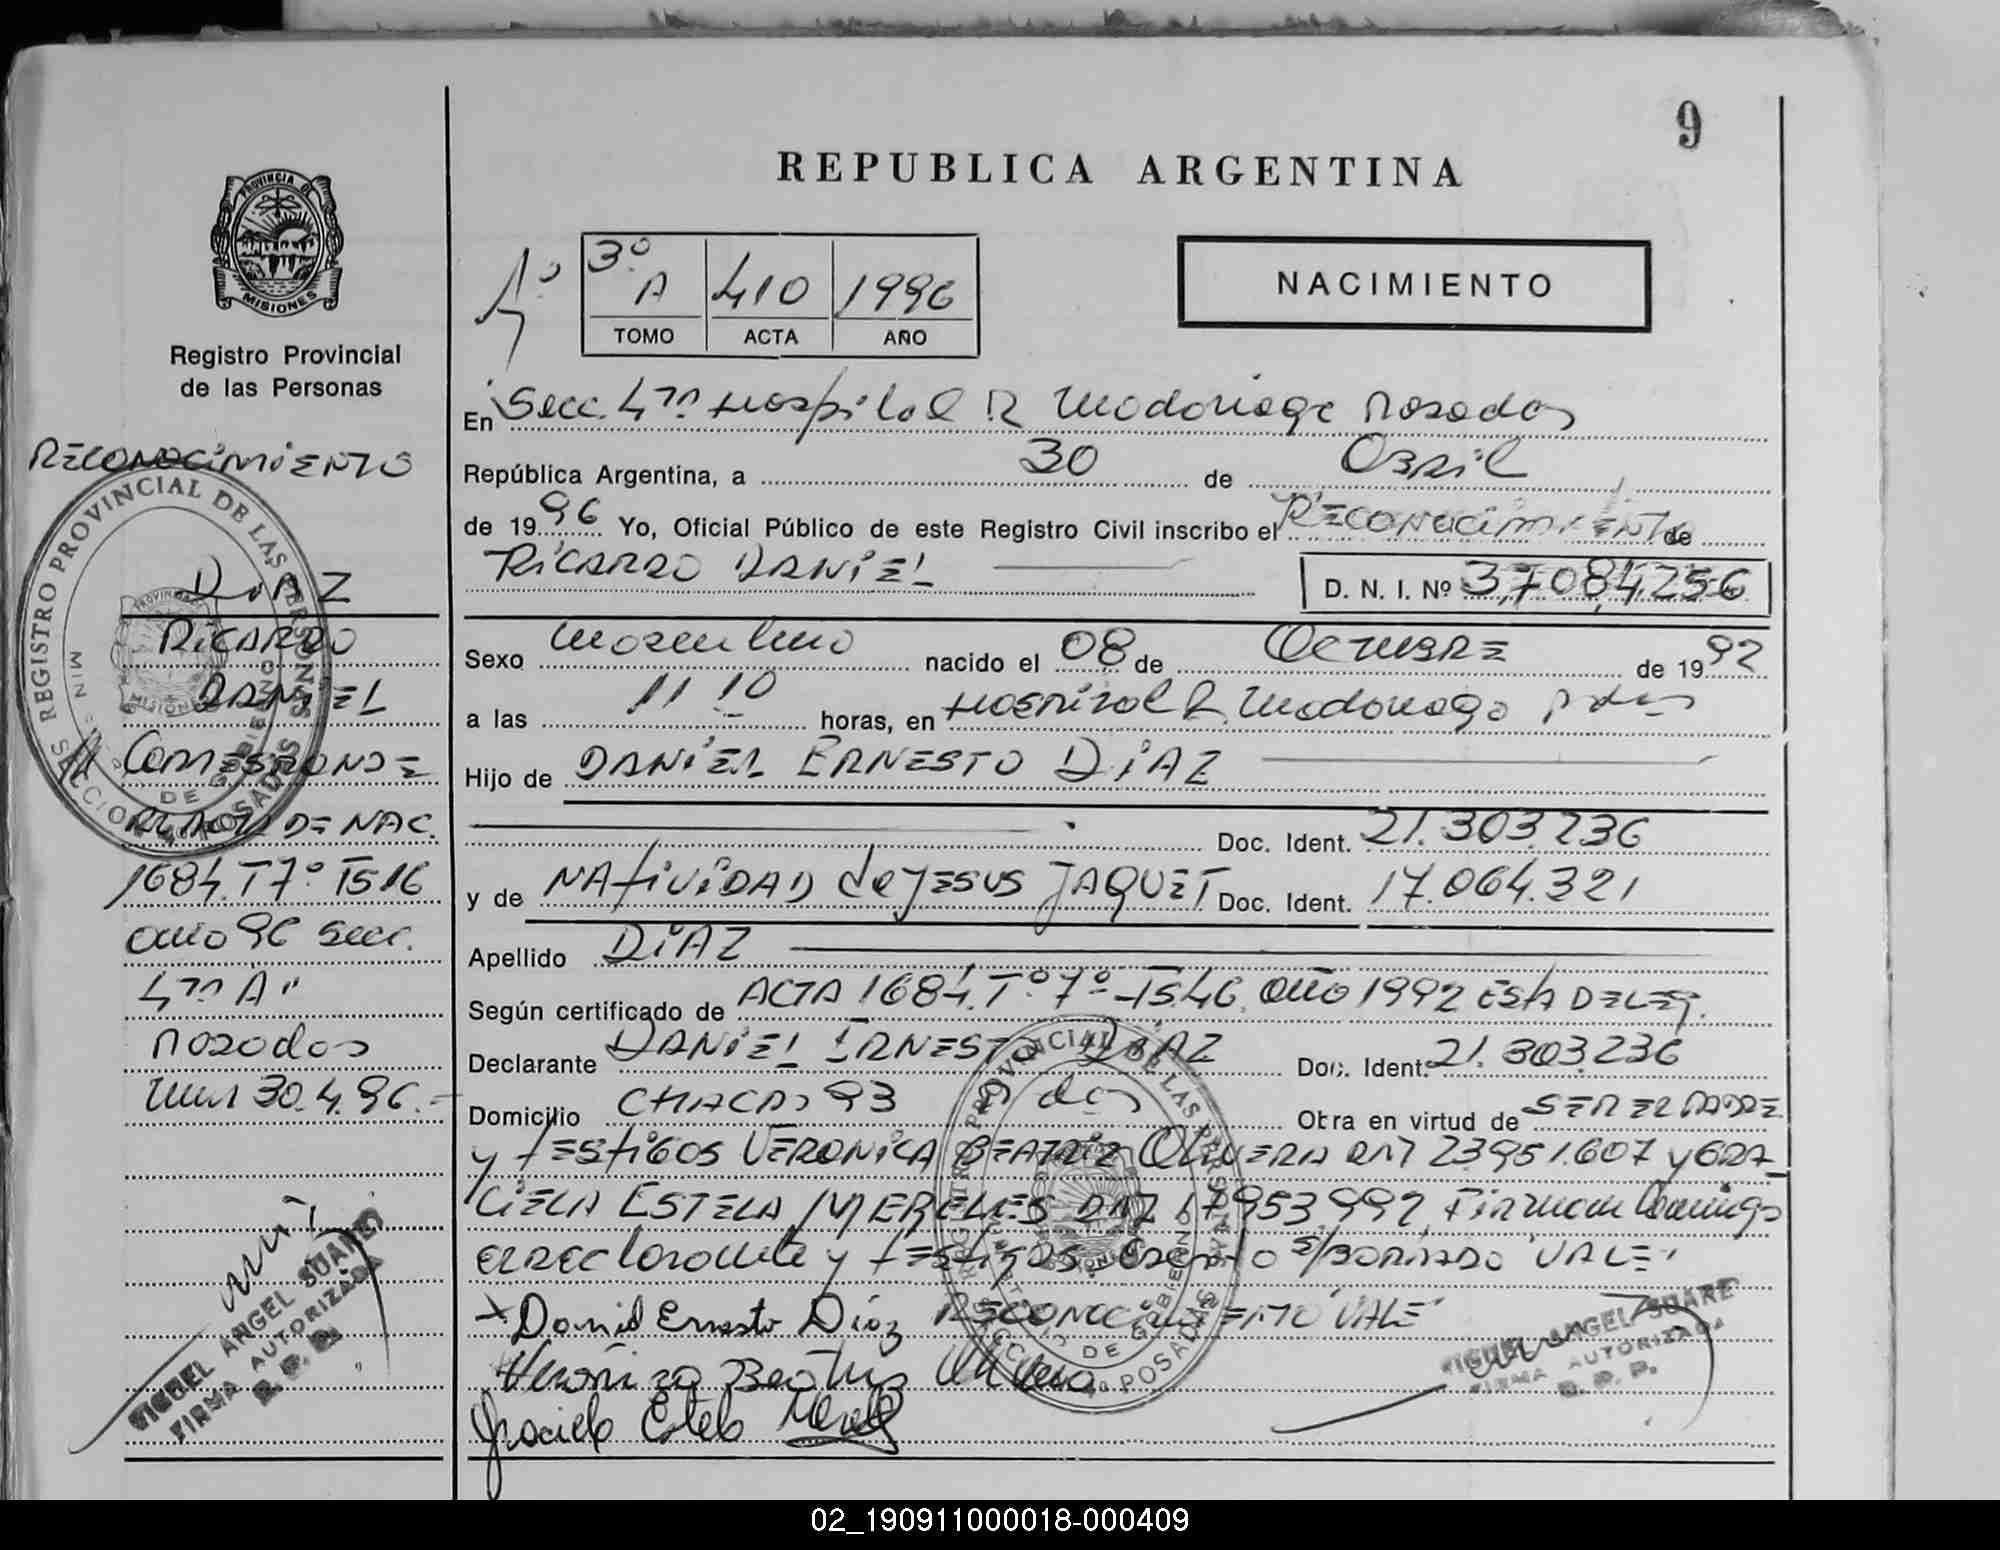 9
REPUBLICA ARGENTINA
PROVINCIA DE
MISIONES
Registro Provincial
de las Personas
3º A 410 1996
TOMO ACTA AÑO
NACIMIENTO
En Secc. 4ta Hospital R Madariaga Posadas
República Argentina, a 30 de Abril
de 1996 Yo, Oficial Público de este Registro Civil inscribo el Reconocimiento de
RICARDO DANIEL
D. N. I. Nº 37,084,256
Sexo Masculino nacido el 08 de Octubre de 1992
a las 11 10 horas, en Hospital R. Madariaga Pdas
Hijo de DANIEL ERNESTO DIAZ
Doc. Ident. 21.303.236
y de NATIVIDAD de JESUS JAQUET Doc. Ident. 17.064.321
Apellido DIAZ
Según certificado de ACTA 1684. Tº 7º T5.46. Año 1992 Esta Deleg.
Declarante DANIEL ERNESTO DIAZ Doc. Ident. 21.303.236
Domicilio CHACRAS 93 Pdas Obra en virtud de SER EL PADRE
y TESTIGOS VERONICA BEATRIZ OLIVERA DNI 23951.607 y GRA-
CIELA ESTELA MERELES DNI 17953.992, Firman Conmigo
el declarante y testigos. Exento S/BORRADO VALE
RECONOCIMIENTO VALE
Daniel Ernesto Díaz
Verónica Beatriz Olivera
Graciela Estela
MIGUEL ANGEL SUAREZ
FIRMA AUTORIZADA
R. P. P.
REGISTRO PROVINCIAL DE LAS PERSONAS
SECCION 4ª POSADAS
RECONOCIMIENTO
DIAZ
RICARDO
DANIEL
CORRESPONDE
AL ACTA DE NAC.
1684. T 7º T5 16
año 96 Secc.
4ta A"
Posadas
Mnes 30.4.96.-
MIGUEL ANGEL SUAREZ
FIRMA AUTORIZADA
R. P. P.
REGISTRO PROVINCIAL DE LAS PERSONAS
02_190911000018-000409